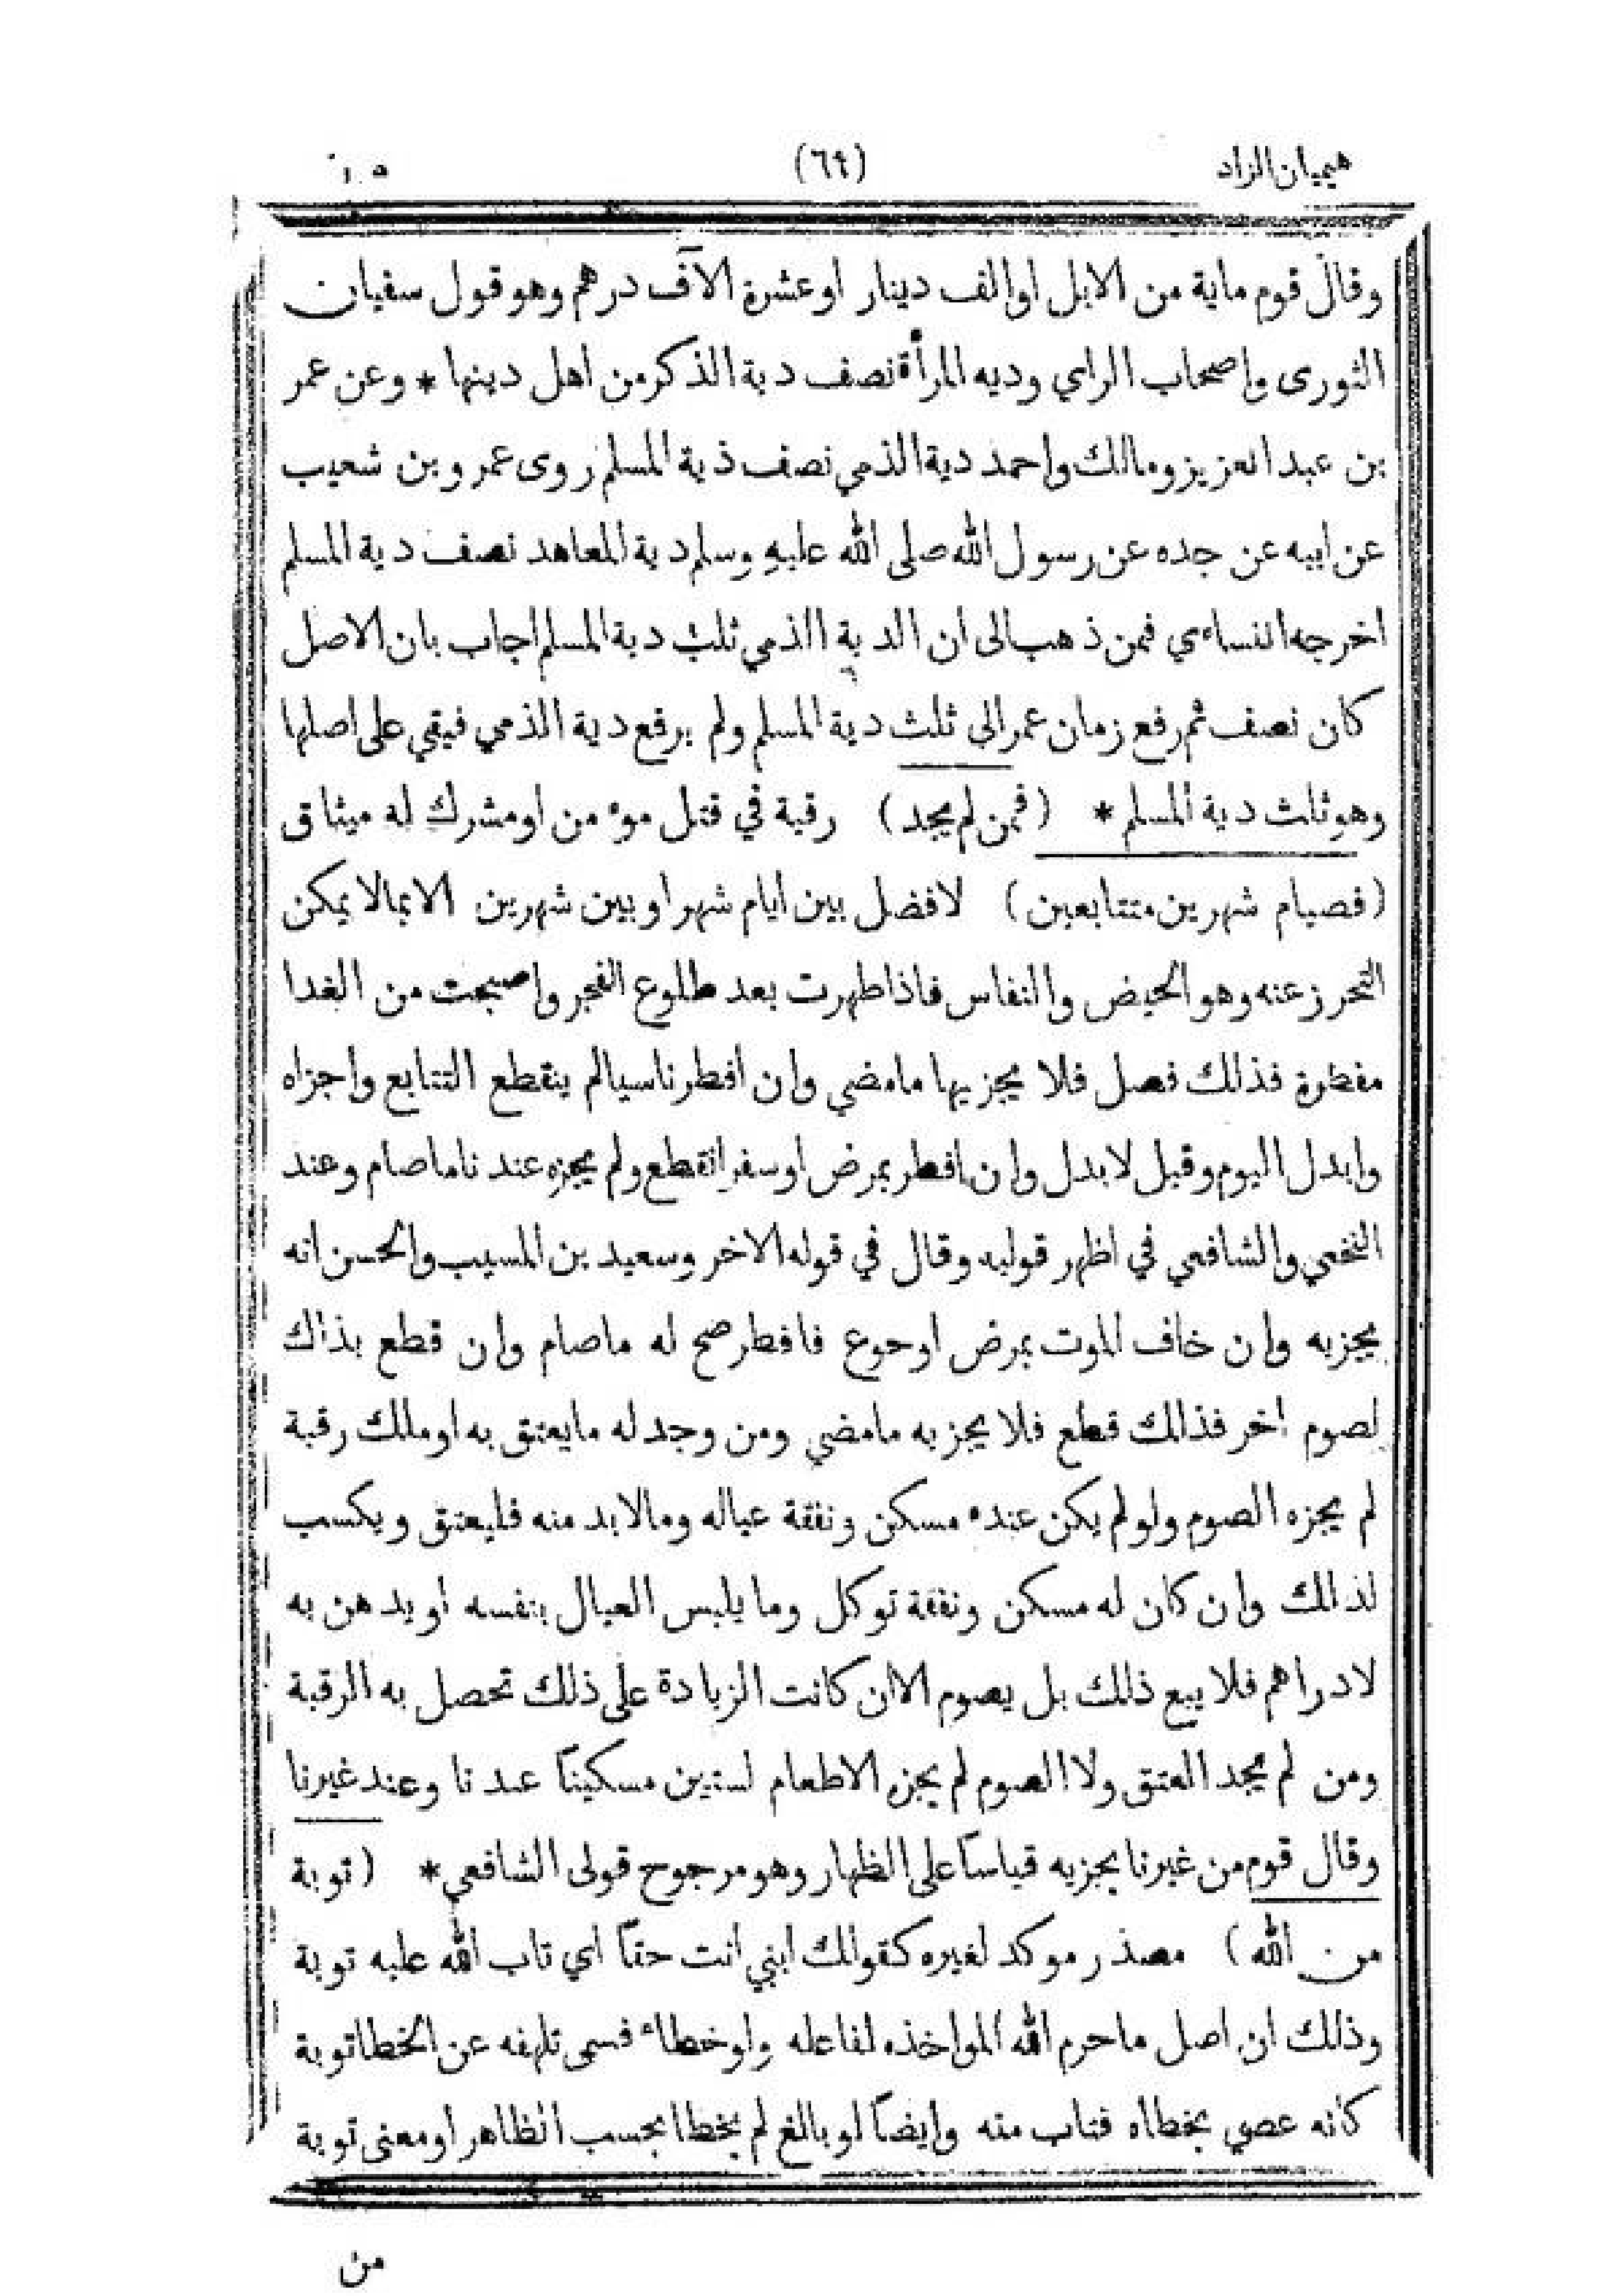 هيميان الزاد (٦٤) ٥
وقال قوم ماية من الابل اوالف دينار اوعشرة الآف درهم وهوقول سفيان
الثورى واصحاب الراي وديه المرأة نصف دية الذكرمن اهل دينها * وعن عمر
بن عبد العزيز ومالك واحمد دية الذمي نصف ذية المسلم روى عمرو بن شعيب
عن ابيه عن جده عن رسول الله صلى الله عليهِ وسلم دية المعاهد نصف دية المسلم
اخرجه النساءي فمن ذهب الى ان الدية الذمي ثلث دية المسلم اجاب بان الاصل
كان نصف ثم رفع زمان عمر الى ثلث دية المسلم ولم يرفع دية الذمي فيقي على اصلها
وهو ثلث دية المسلم * (فمن لم يجد) رقبة في قتل موء من اومشرك له ميثاق
(فصيام شهرين متتابعين) لافضل بين ايام شهر او بين شهرين الابمالايمكن
التحرز عنه وهو الحيض والنفاس فاذا طهرت بعد طلوع الفجر واصبحت من الغدا
مفطرة فذلك فصل فلا يجزيها مامضي وان افطر ناسيالم ينقطع التتابع واجزاه
وابدل اليوم وقيل لابدل وان افطر بمرض اوسفر انقطع ولم يجزه عند ناماصام وعند
النخعي والشافعي في اظهر قوليه وقال في قوله الاخر وسعيد بن المسيب والحسن انه
يجزيه وان خاف الموت بمرض اوحوع فافطر صح له ماصام وان قطع بذاك
لصوم اخر فذالك قطع فلا يجزيه مامضي ومن وجد له مايعتق به اوملك رقبة
لم يجزه الصوم ولولم يكن عنده مسكن ونفقة عياله ومالابد منه فليعتق ويكسب
لذالك وان كان له مسكن ونفقة توكل ومايلبس العيال بنفسه اويدهن به
لادراهم فلا يبع ذالك بل يصوم الاان كانت الزيادة على ذلك تحصل به الرقبة
ومن لم يجد العتق ولا الصوم لم يجزه الاطعام لستين مسكيناً عند نا وعند غيرنا
وقال قوم من غيرنا يجزيه قياساً على الظهار وهو مرجوح قولى الشافعي * (توبة
من الله) مصذر موكد لغيره كقولك ابني انت حقاً اي تاب الله عليه توبة
وذلك ان اصل ماحرم الله المواخذه لفاعله ولوخطاء فسمى تلهفه عن الخطا توبة
كانه عصي بخطاه فتاب منه وايضاً لو بالغ لم يخطا بحسب الظاهر او معنى توبة
من